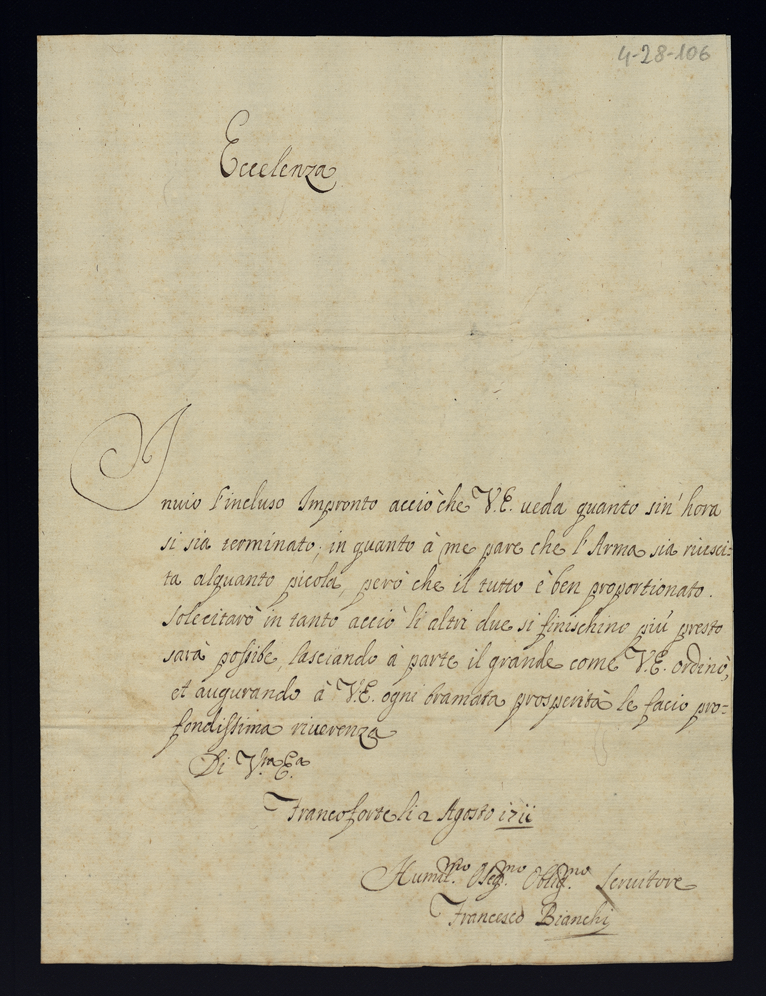 4-28-106
Eccelenza
Inuio l'incluso Impronto acciò che V.E. ueda quanto sin' hora
si sia terminato; in quanto à me pare che l'Arma sia riusci=
ta alquanto picola, però che il tutto è ben proportionato.
Solecitarò in tanto acciò li altri due si finischino più presto
sarà possibe, lasciando à parte il grande come V.E. ordinò,
et augurando à V.E. ogni bramata prosperità le facio pro=
fondissima riuerenza
Di V.ra E.a
Francoforte li 2 Agosto 1711
Humil.mo Oseq.mo Oblig.mo Seruitore
Francesco Bianchi